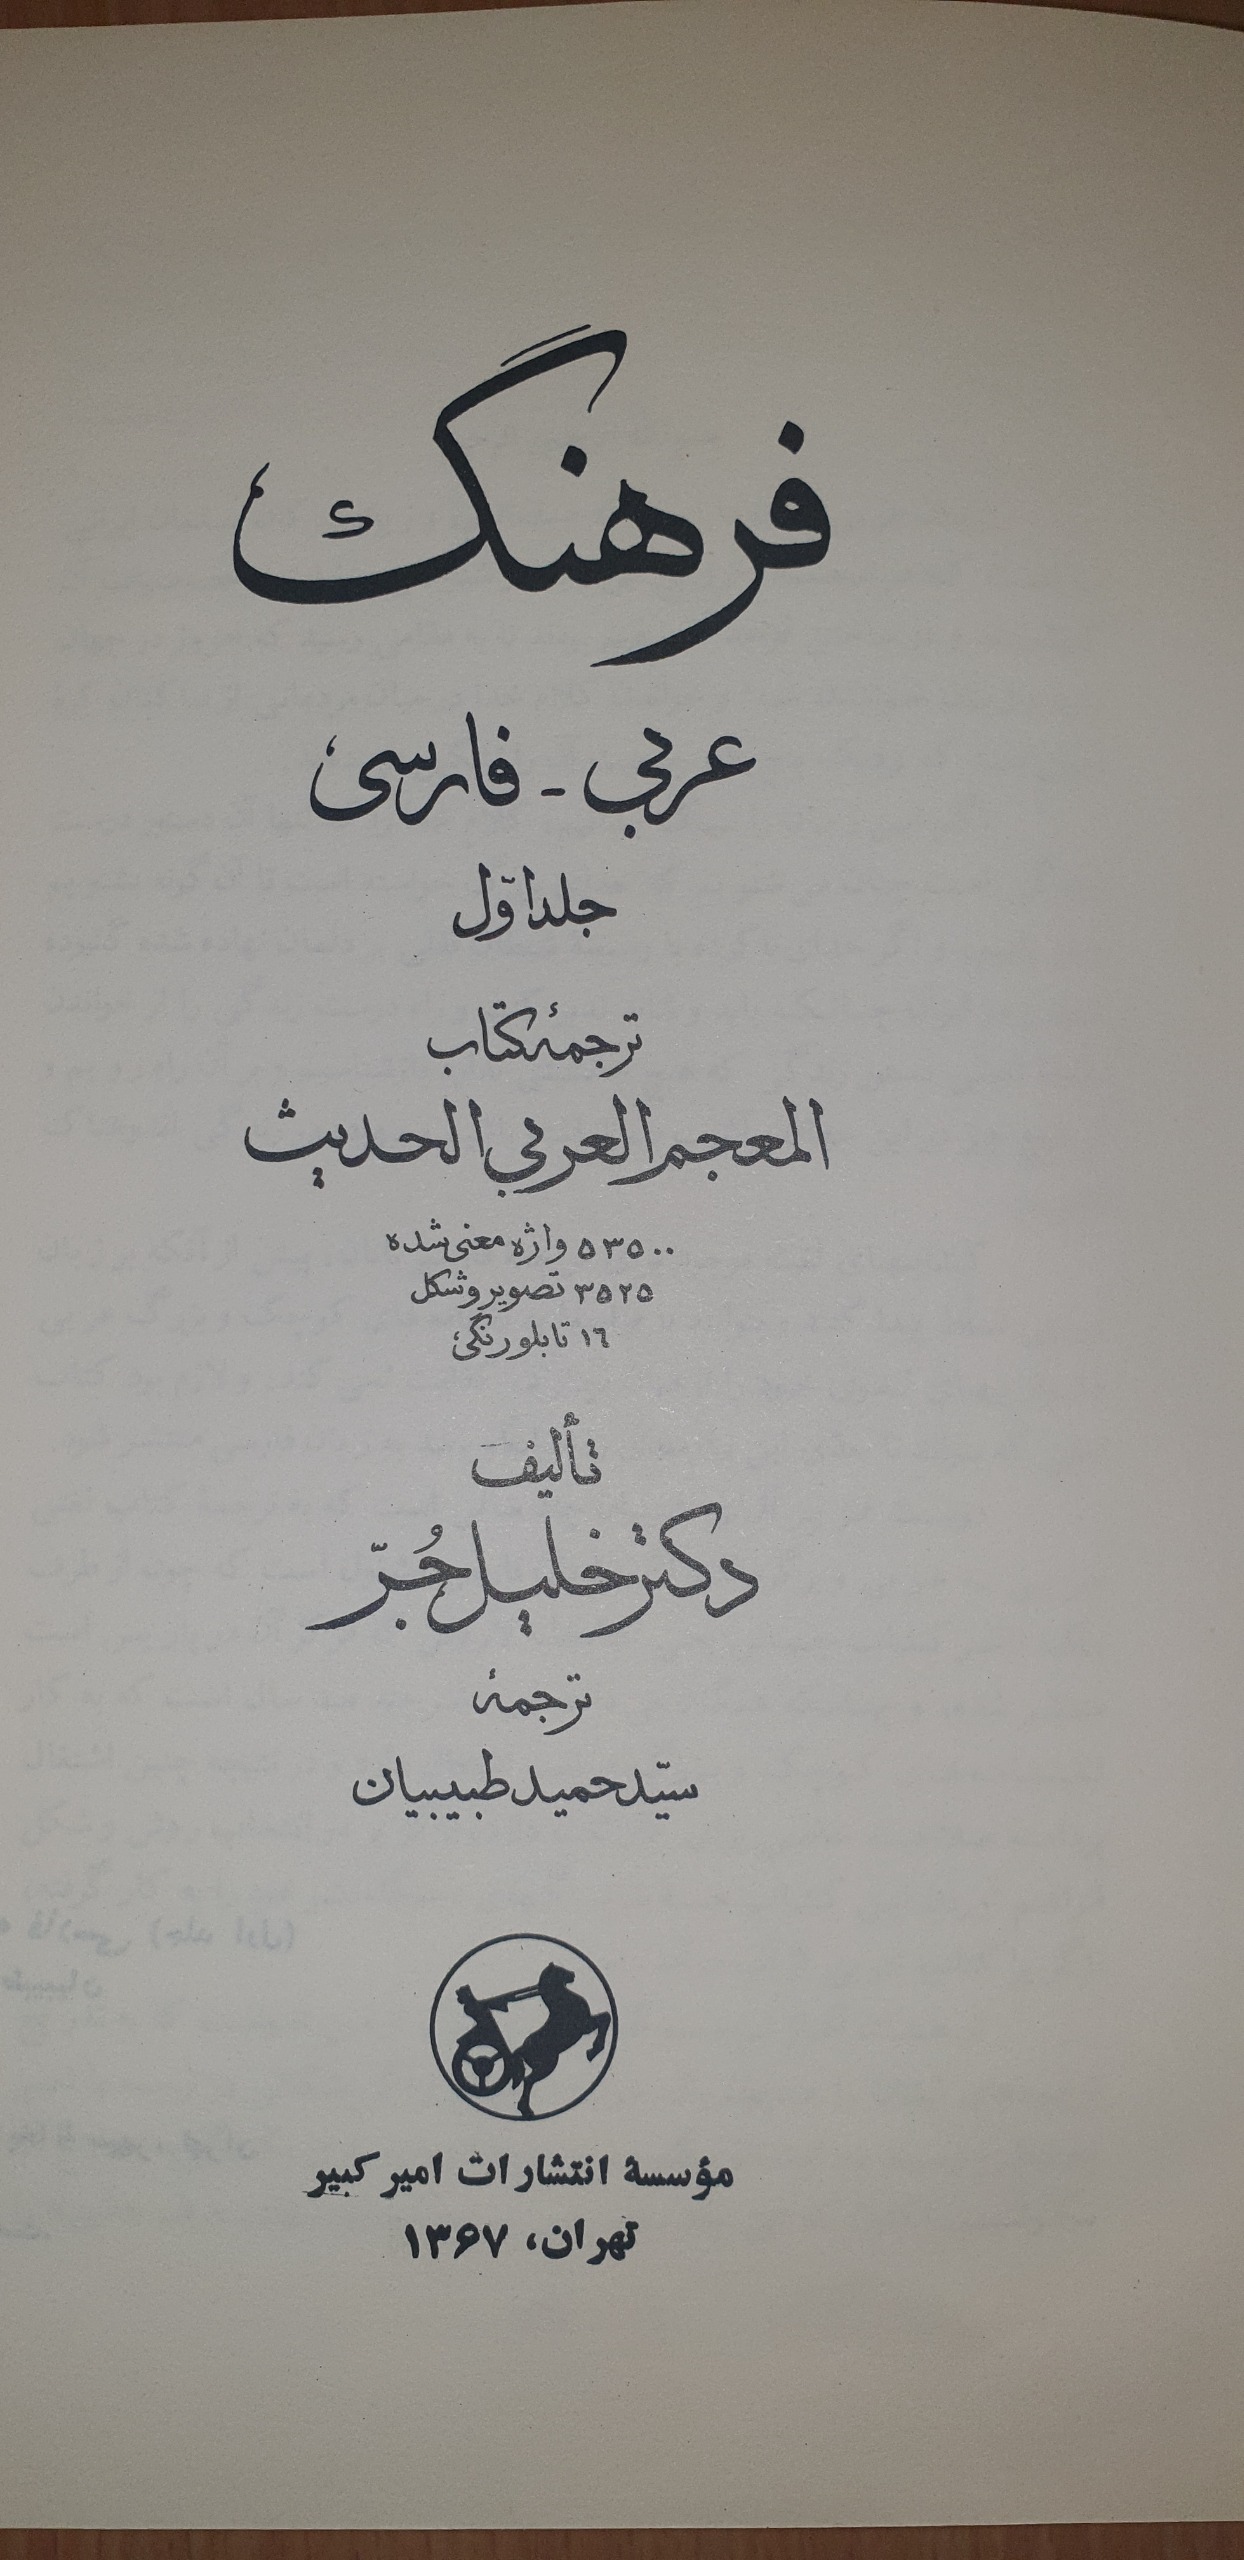 فرهنگ
عربی - فارسی
جلد اوّل
ترجمهٔ کتاب
المعجم العربي الحديث
۵۳۵۰۰ واژه معنی شده
۳۵۲۵ تصویر و شکل
١٦ تابلو رنگی
تألیف
دکتر خلیل جُرّ
ترجمهٔ
سیّد حمید طبیبیان
مؤسسهٔ انتشارات امیر کبیر
تهران، ۱۳۶۷